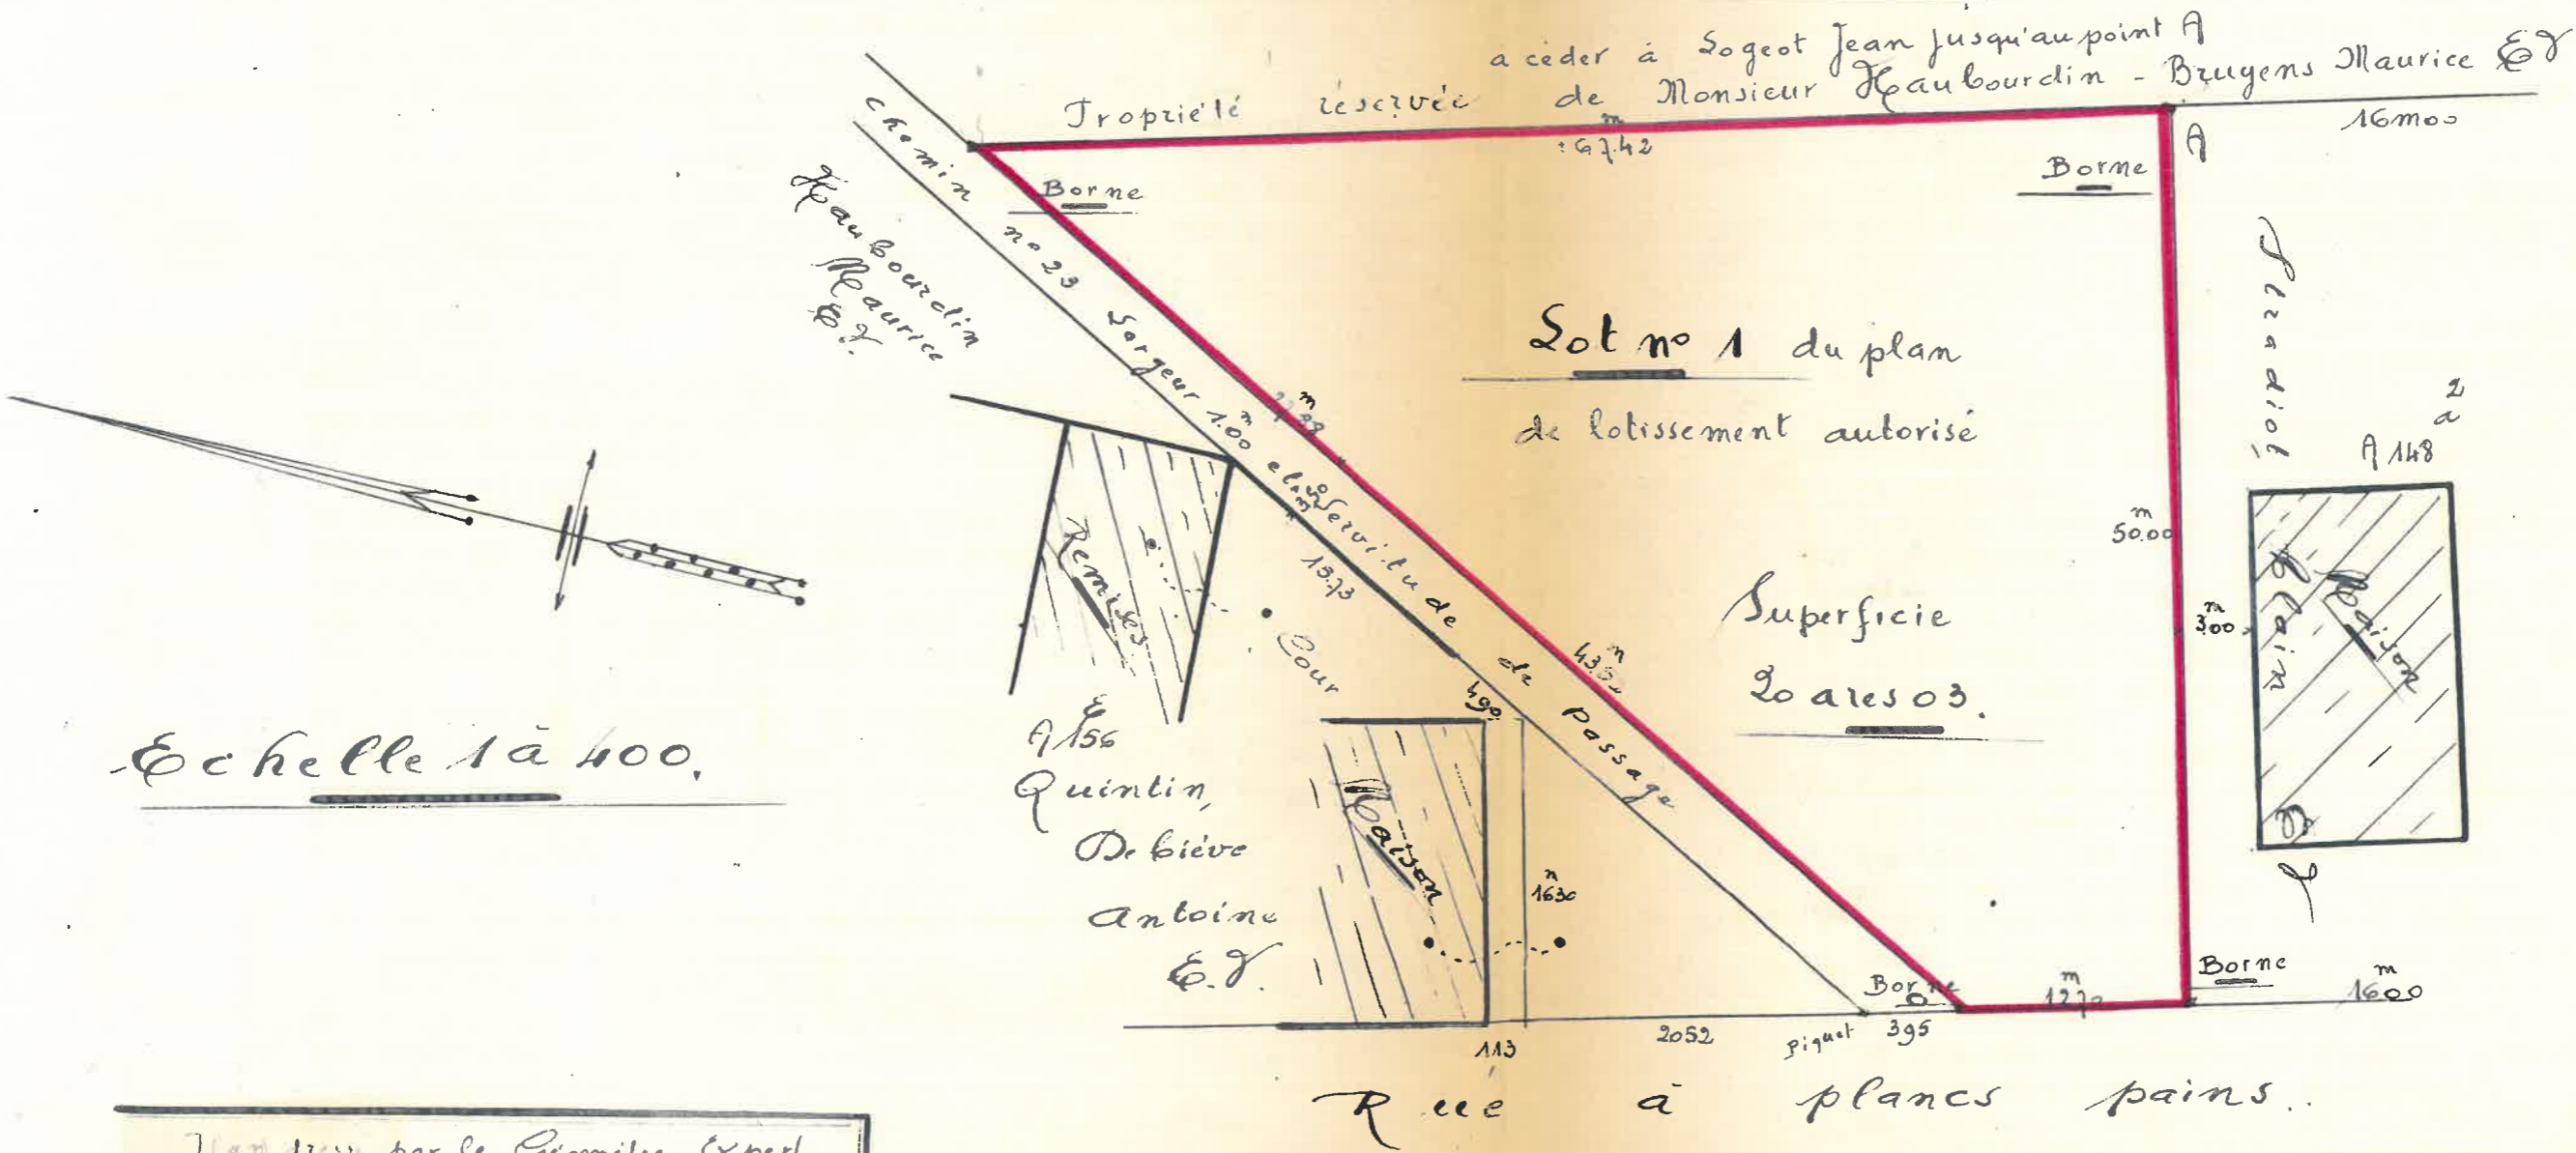 a céder à Sogeot Jean jusqu'au point A
Propriété réservée de Monsieur Haubourdin - Bruyens Maurice E.V
16m00
m
67.42
A
Borne
Borne
chemin n° 23 Largeur 1.00 m et Servitude de passage
Haubourdin
Maurice
E.V.
Lot n° 1 du plan
de lotissement autorisé
Superficie
20 ares 03.
m
50.00
m
3.00
2
a
A 148
Maison
m
43.5
13.73
4.90
Remises
Cour
Echelle 1 à 400.
E
A 156
Quintin,
Debiève
Antoine
E.V.
Maison
m
16.30
Borne
m
12.70
Borne
m
16.00
113
2052
piquet
395
Rue à plancs pains..
Plan par le Géomètre Expert